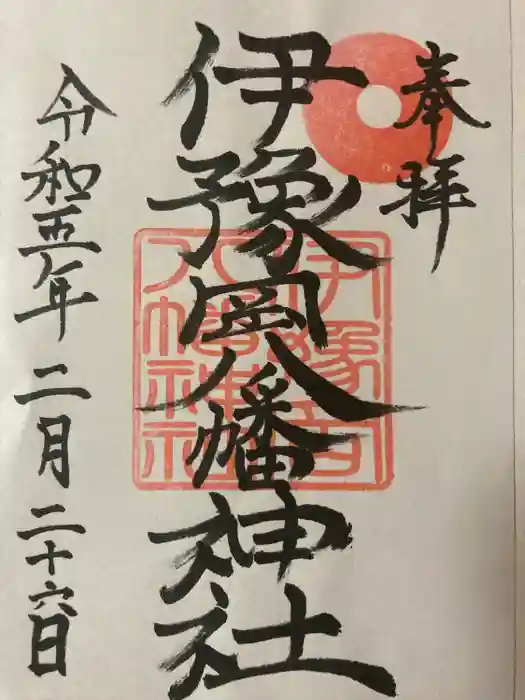 奉拝
伊豫岡八幡神社
伊豫岡
八幡神社
令和五年二月二十六日